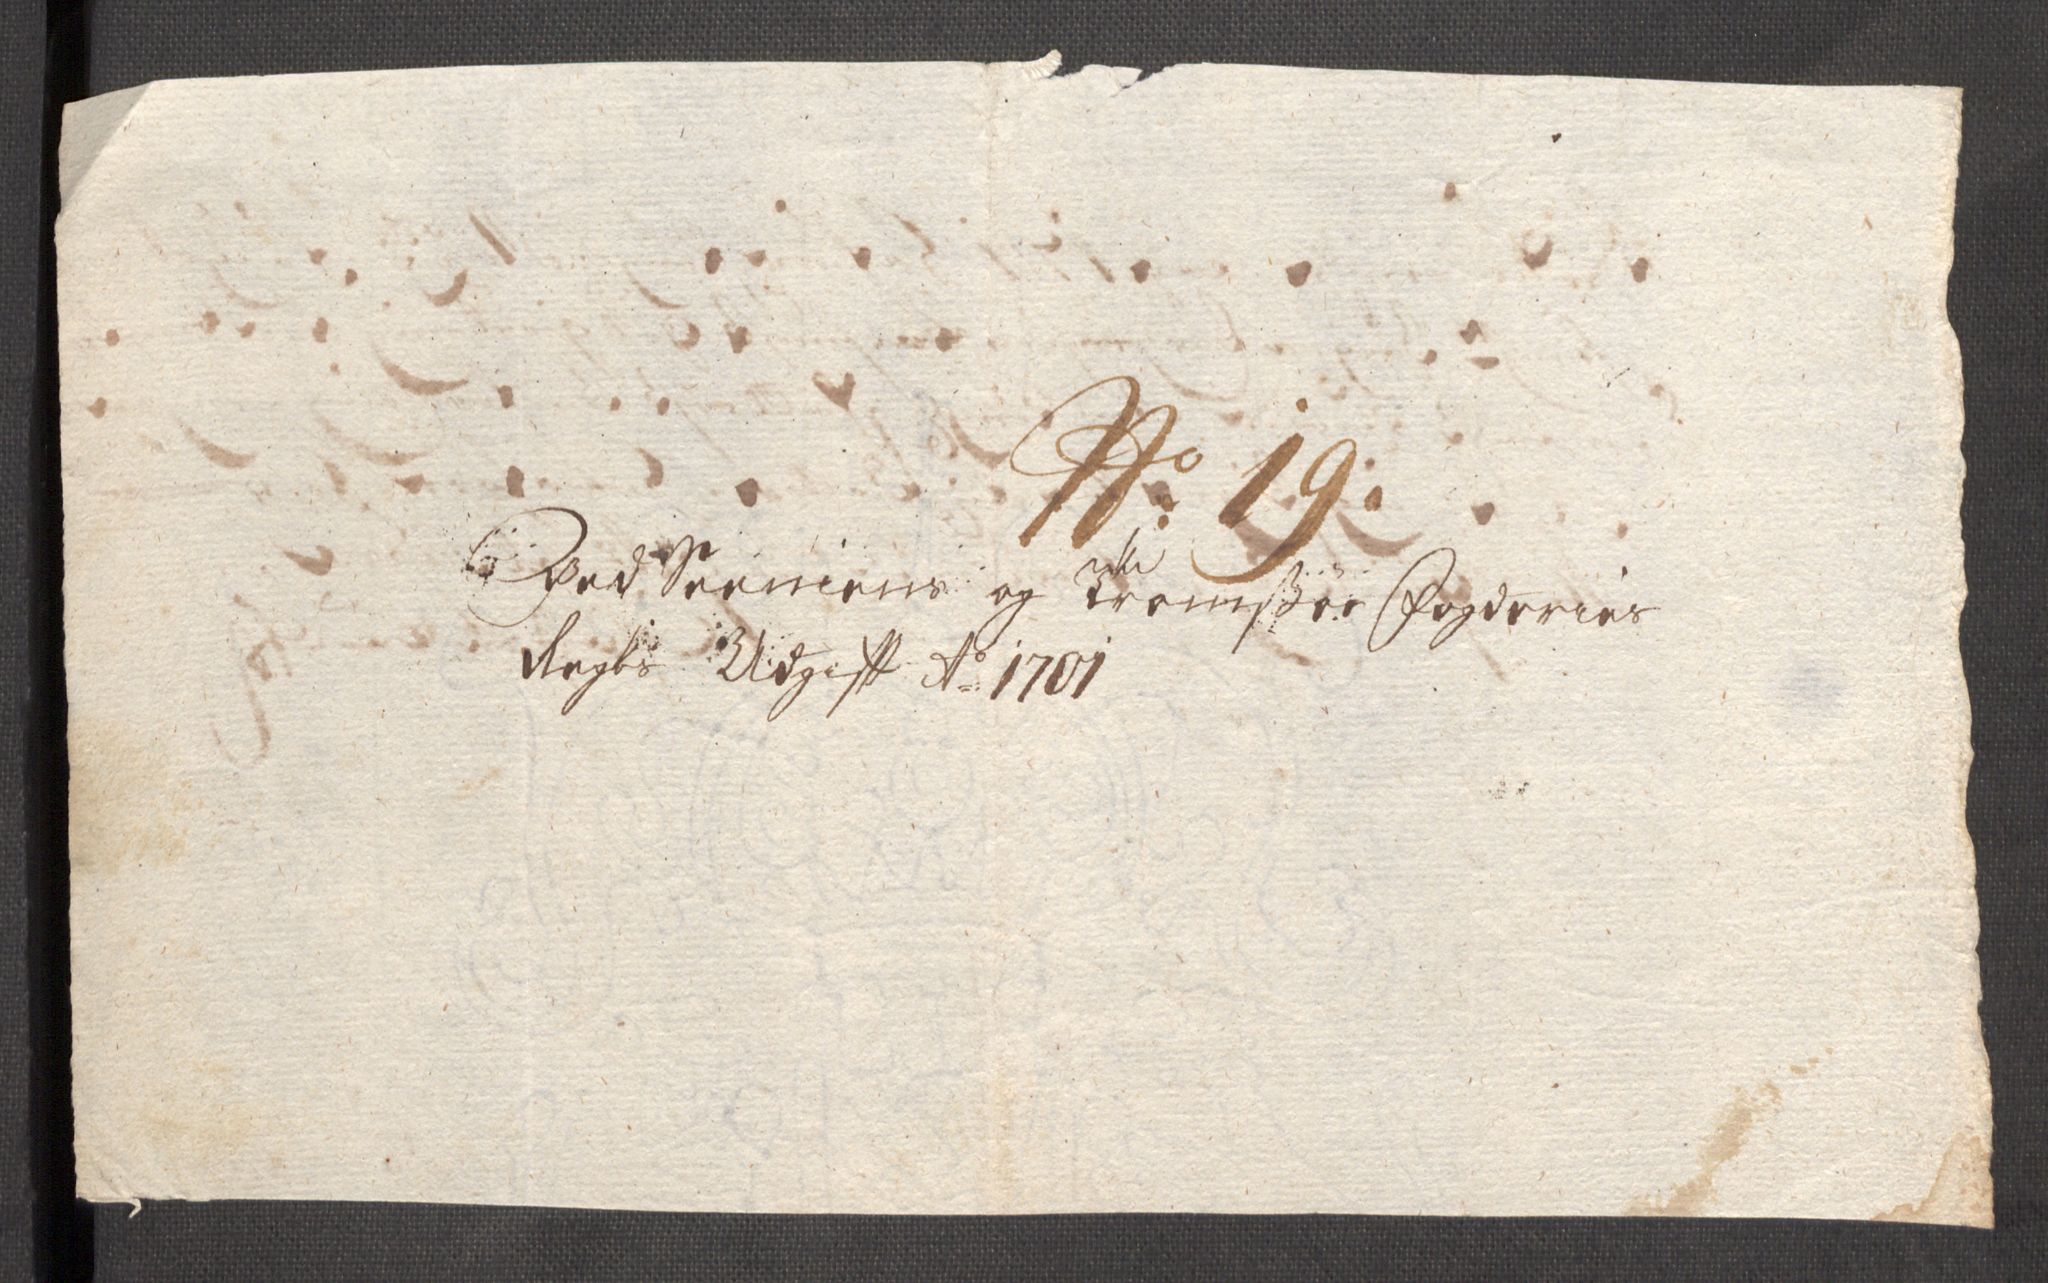 No 19.
Ved Senniens og Tromsøe Fogderies
Regbs Udgift Ao 1701